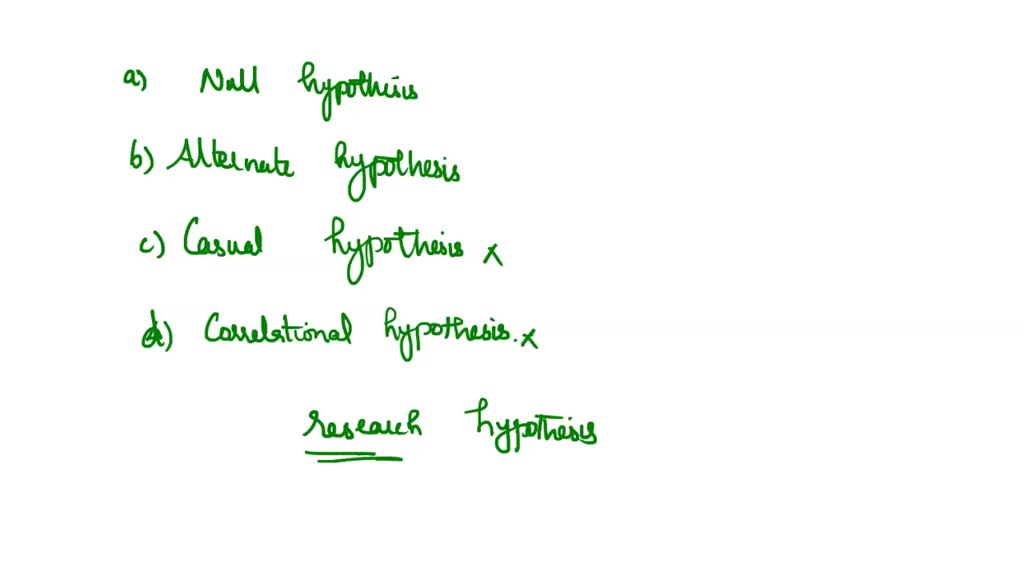 a) Null hypothesis
b) Alternate hypothesis
c) Casual hypothesis x
d) Correlational hypothesis. x
research hypothesis